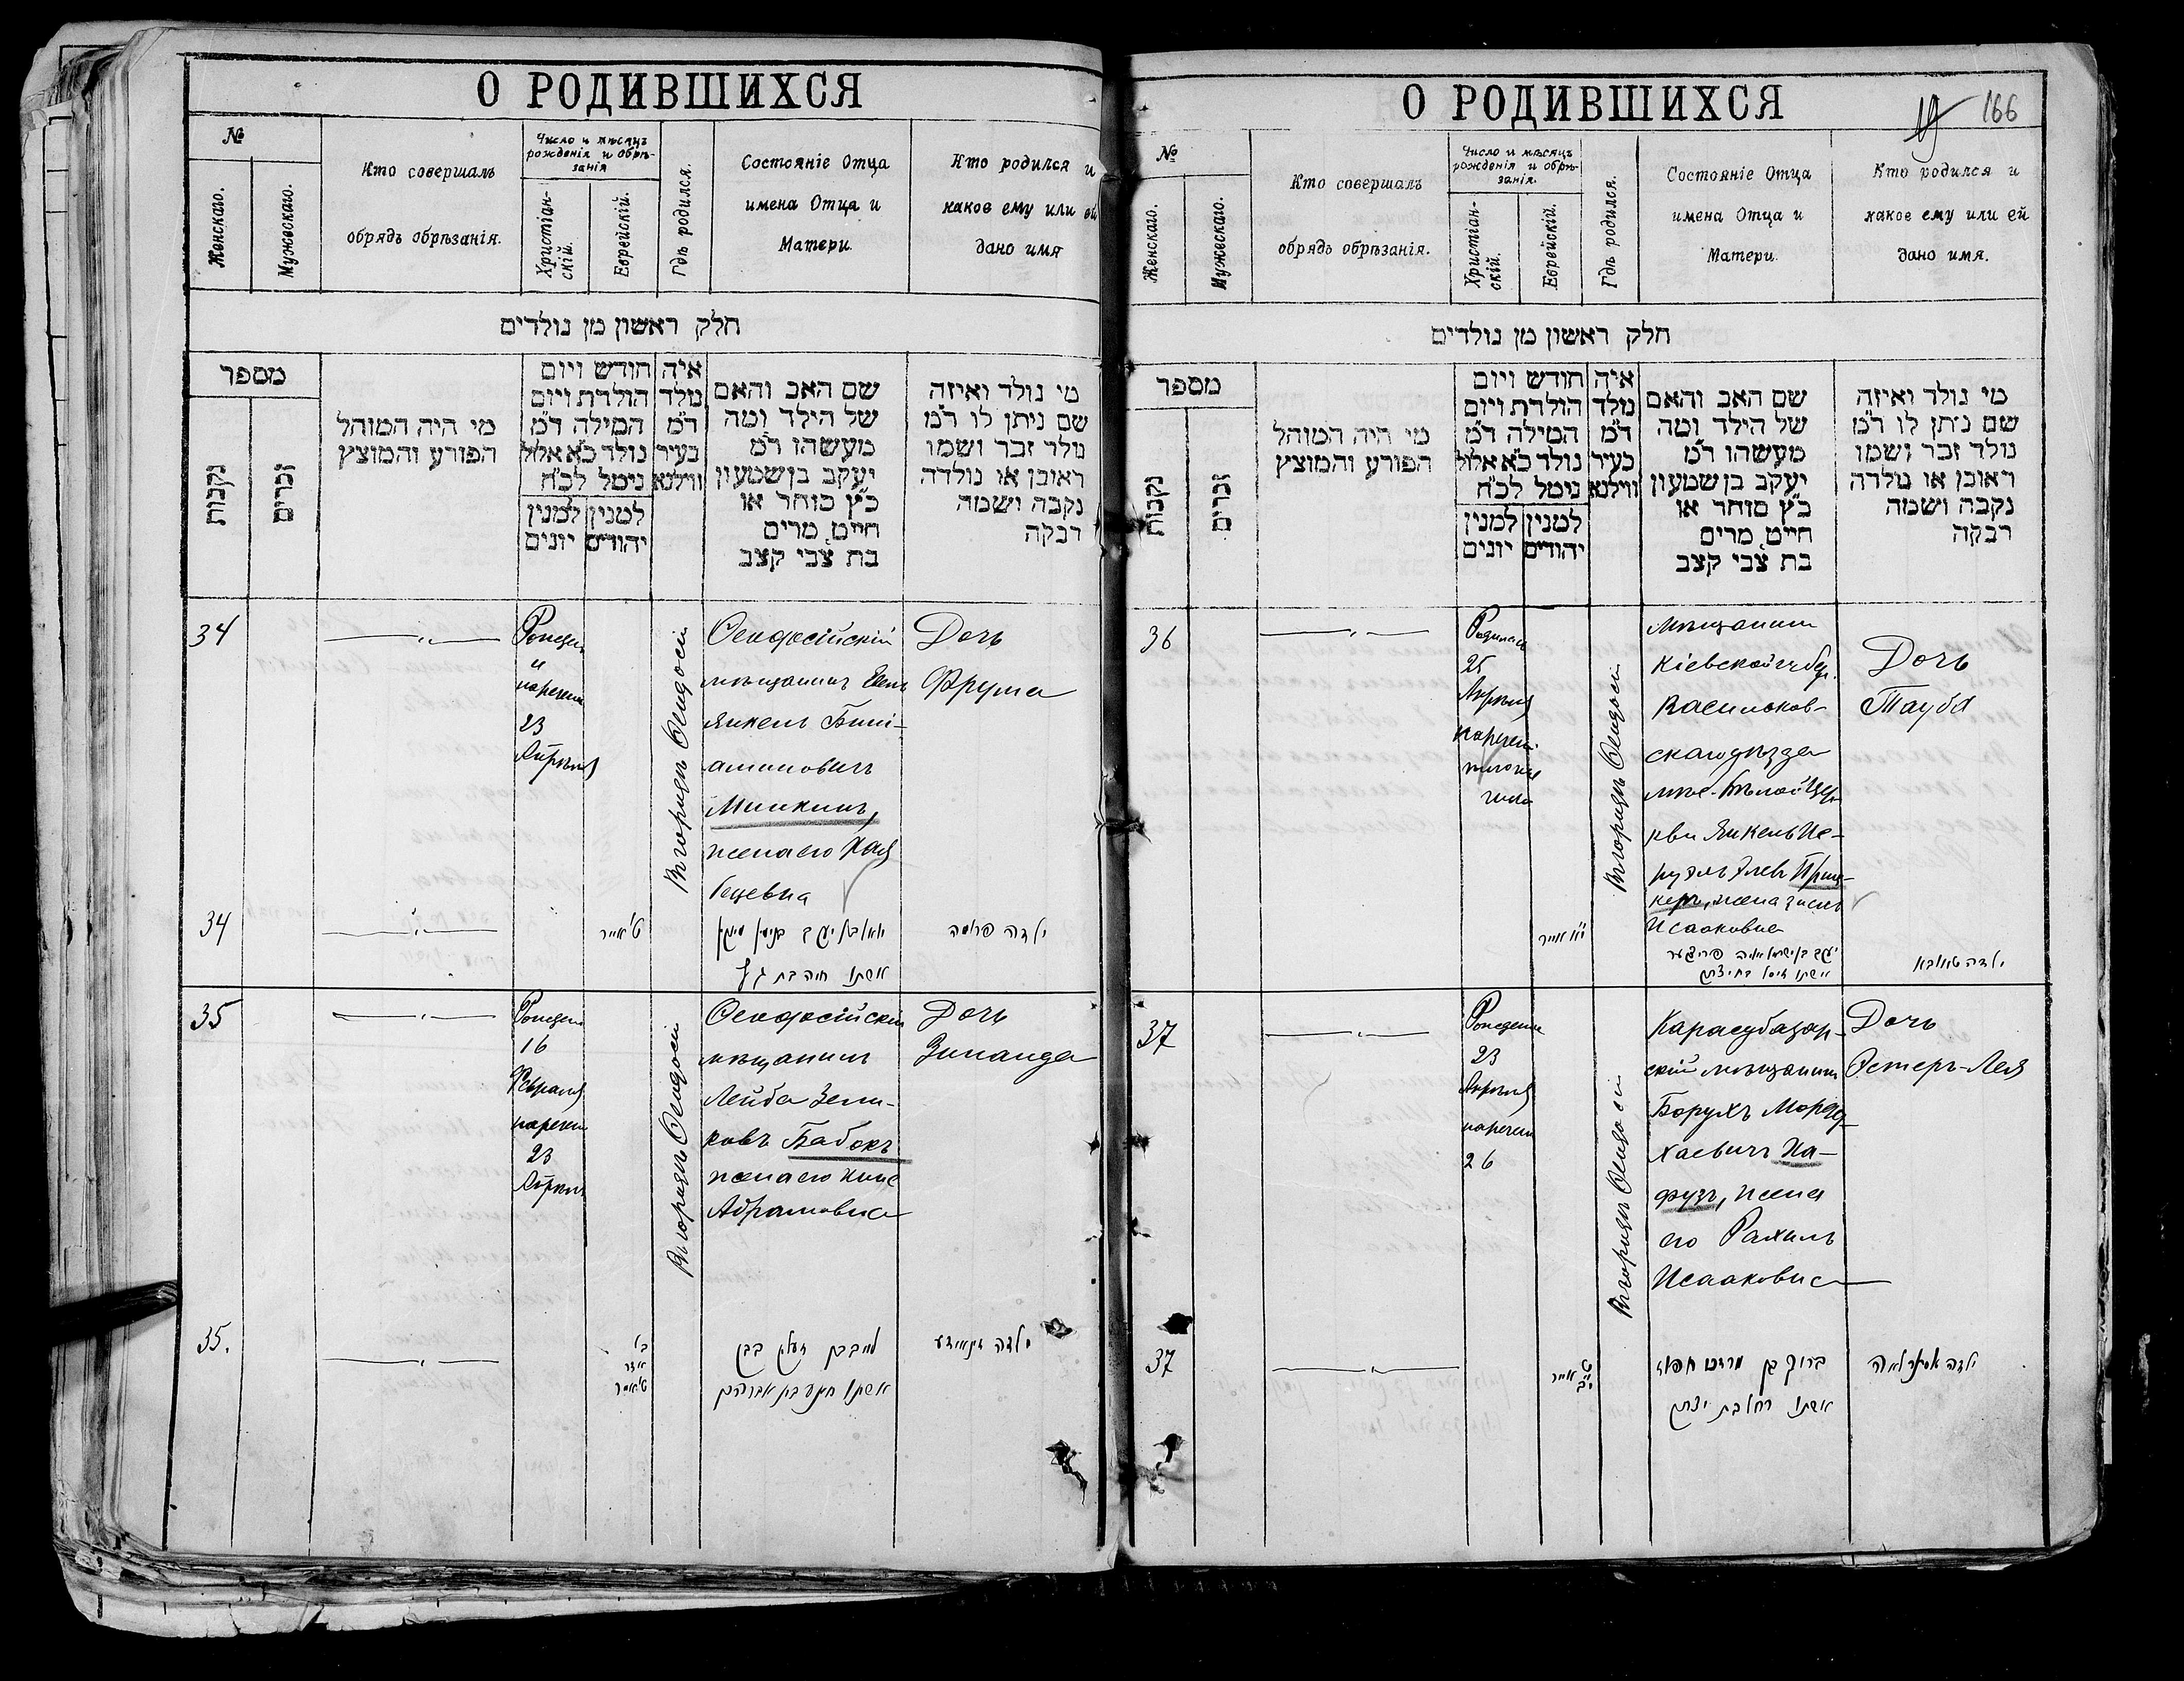 О РОДИВШИХСЯ
№
Женскаго.
Мужескаго.
Кто совершалъ
обрядъ обрѣзанія.
Число и мѣсяцъ
рожденія и обрѣ-
занія
Христіан-
скій.
Еврейскій.
Гдѣ родился.
Состояніе Отца
имена Отца и
Матери.
Кто родился и
какое ему или ей
дано имя
חלק ראשון מן נולדים
מספר
נקבות
זכרים
מי היה המוהל
הפורע והמוצץ
חודש ויום
הולדת ויום
המילה ד״מ
נולד כ״א אלול
נימל לכ״ח
למנין יונים
למנין יהודים
איה
נולד
ד״מ
בעיר
ווילנא
שם האב והאם
של הילד ומה
מעשהו ד״מ
יעקב בן שמעון
כ״ץ סוחר או
חייט, מרים
בת צבי קצב
מי נולד ואיזה
שם ניתן לו ד״מ
נולד זכר ושמו
ראובן או נולדה
נקבה ושמה
רבקה
34
и
23
Апрѣля
Въ городѣ Ѳеодосіи
Ѳеодосійскій
мѣщанинъ
Янкель Бині-
аминовичъ
Минкинъ,
жена его Хая
Гецевна
Дочь
Фрума
34
ט׳ אייר
אשתו חיה בת
ילדה פרומה
35
16
Февраля
23
Апрѣля
Въ городѣ Ѳеодосіи
Ѳеодосійскій
мѣщанинъ
Лейба Зели-
ковъ Бабокъ
жена его
Абрамовна
Дочь
Зинаида
35.
אדר
ט׳ אייר
אשתו חנה בת אברהם
ילדה זינאידע
О РОДИВШИХСЯ
19 166
№
Женскаго.
Мужескаго.
Кто совершалъ
обрядъ обрѣзанія.
Число и мѣсяцъ
рожденія и обрѣ-
занія.
Христіан-
скій.
Еврейскій.
Гдѣ родился.
Состояніе Отца
имена Отца и
Матери.
Кто родился и
какое ему или ей
дано имя.
חלק ראשון מן נולדים
מספר
נקבות
זכרים
מי היה המוהל
הפורע והמוצץ
חודש ויום
הולדת ויום
המילה ד״מ
נולד כ״א אלול
נימל לכ״ח
למנין יונים
למנין יהודים
איה
נולד
ד״מ
בעיר
ווילנא
שם האב והאם
של הילד ומה
מעשהו ד״מ
יעקב בן שמעון
כ״ץ סוחר או
חייט, מרים
בת צבי קצב
מי נולד ואיזה
שם ניתן לו ד״מ
נולד זכר ושמו
ראובן או נולדה
נקבה ושמה
רבקה
36
25
Апрѣля
числа
Въ городѣ Ѳеодосіи
мѣщанинъ
Кіевской губер.
Васильков-
скаго уѣзда
мѣс. Бѣлой Цер-
кви Янкель Из-
жена
Исааковна
Дочь
Тауба
י״א אייר
ילדה טאובא
37
23
Апрѣля
26
Въ городѣ Ѳеодосіи
Карасубазар-
скій мѣщанинъ
Борухъ Мордо-
хаевичъ Ха-
фузъ, жена
его Рахиль
Исааковна
Дочь
Эстеръ-Лея
37
ט׳
י״ב אייר
ברוך בן מרדכי חפוז
אשתו רחל בת יצחק
ילדה אסתר לאה